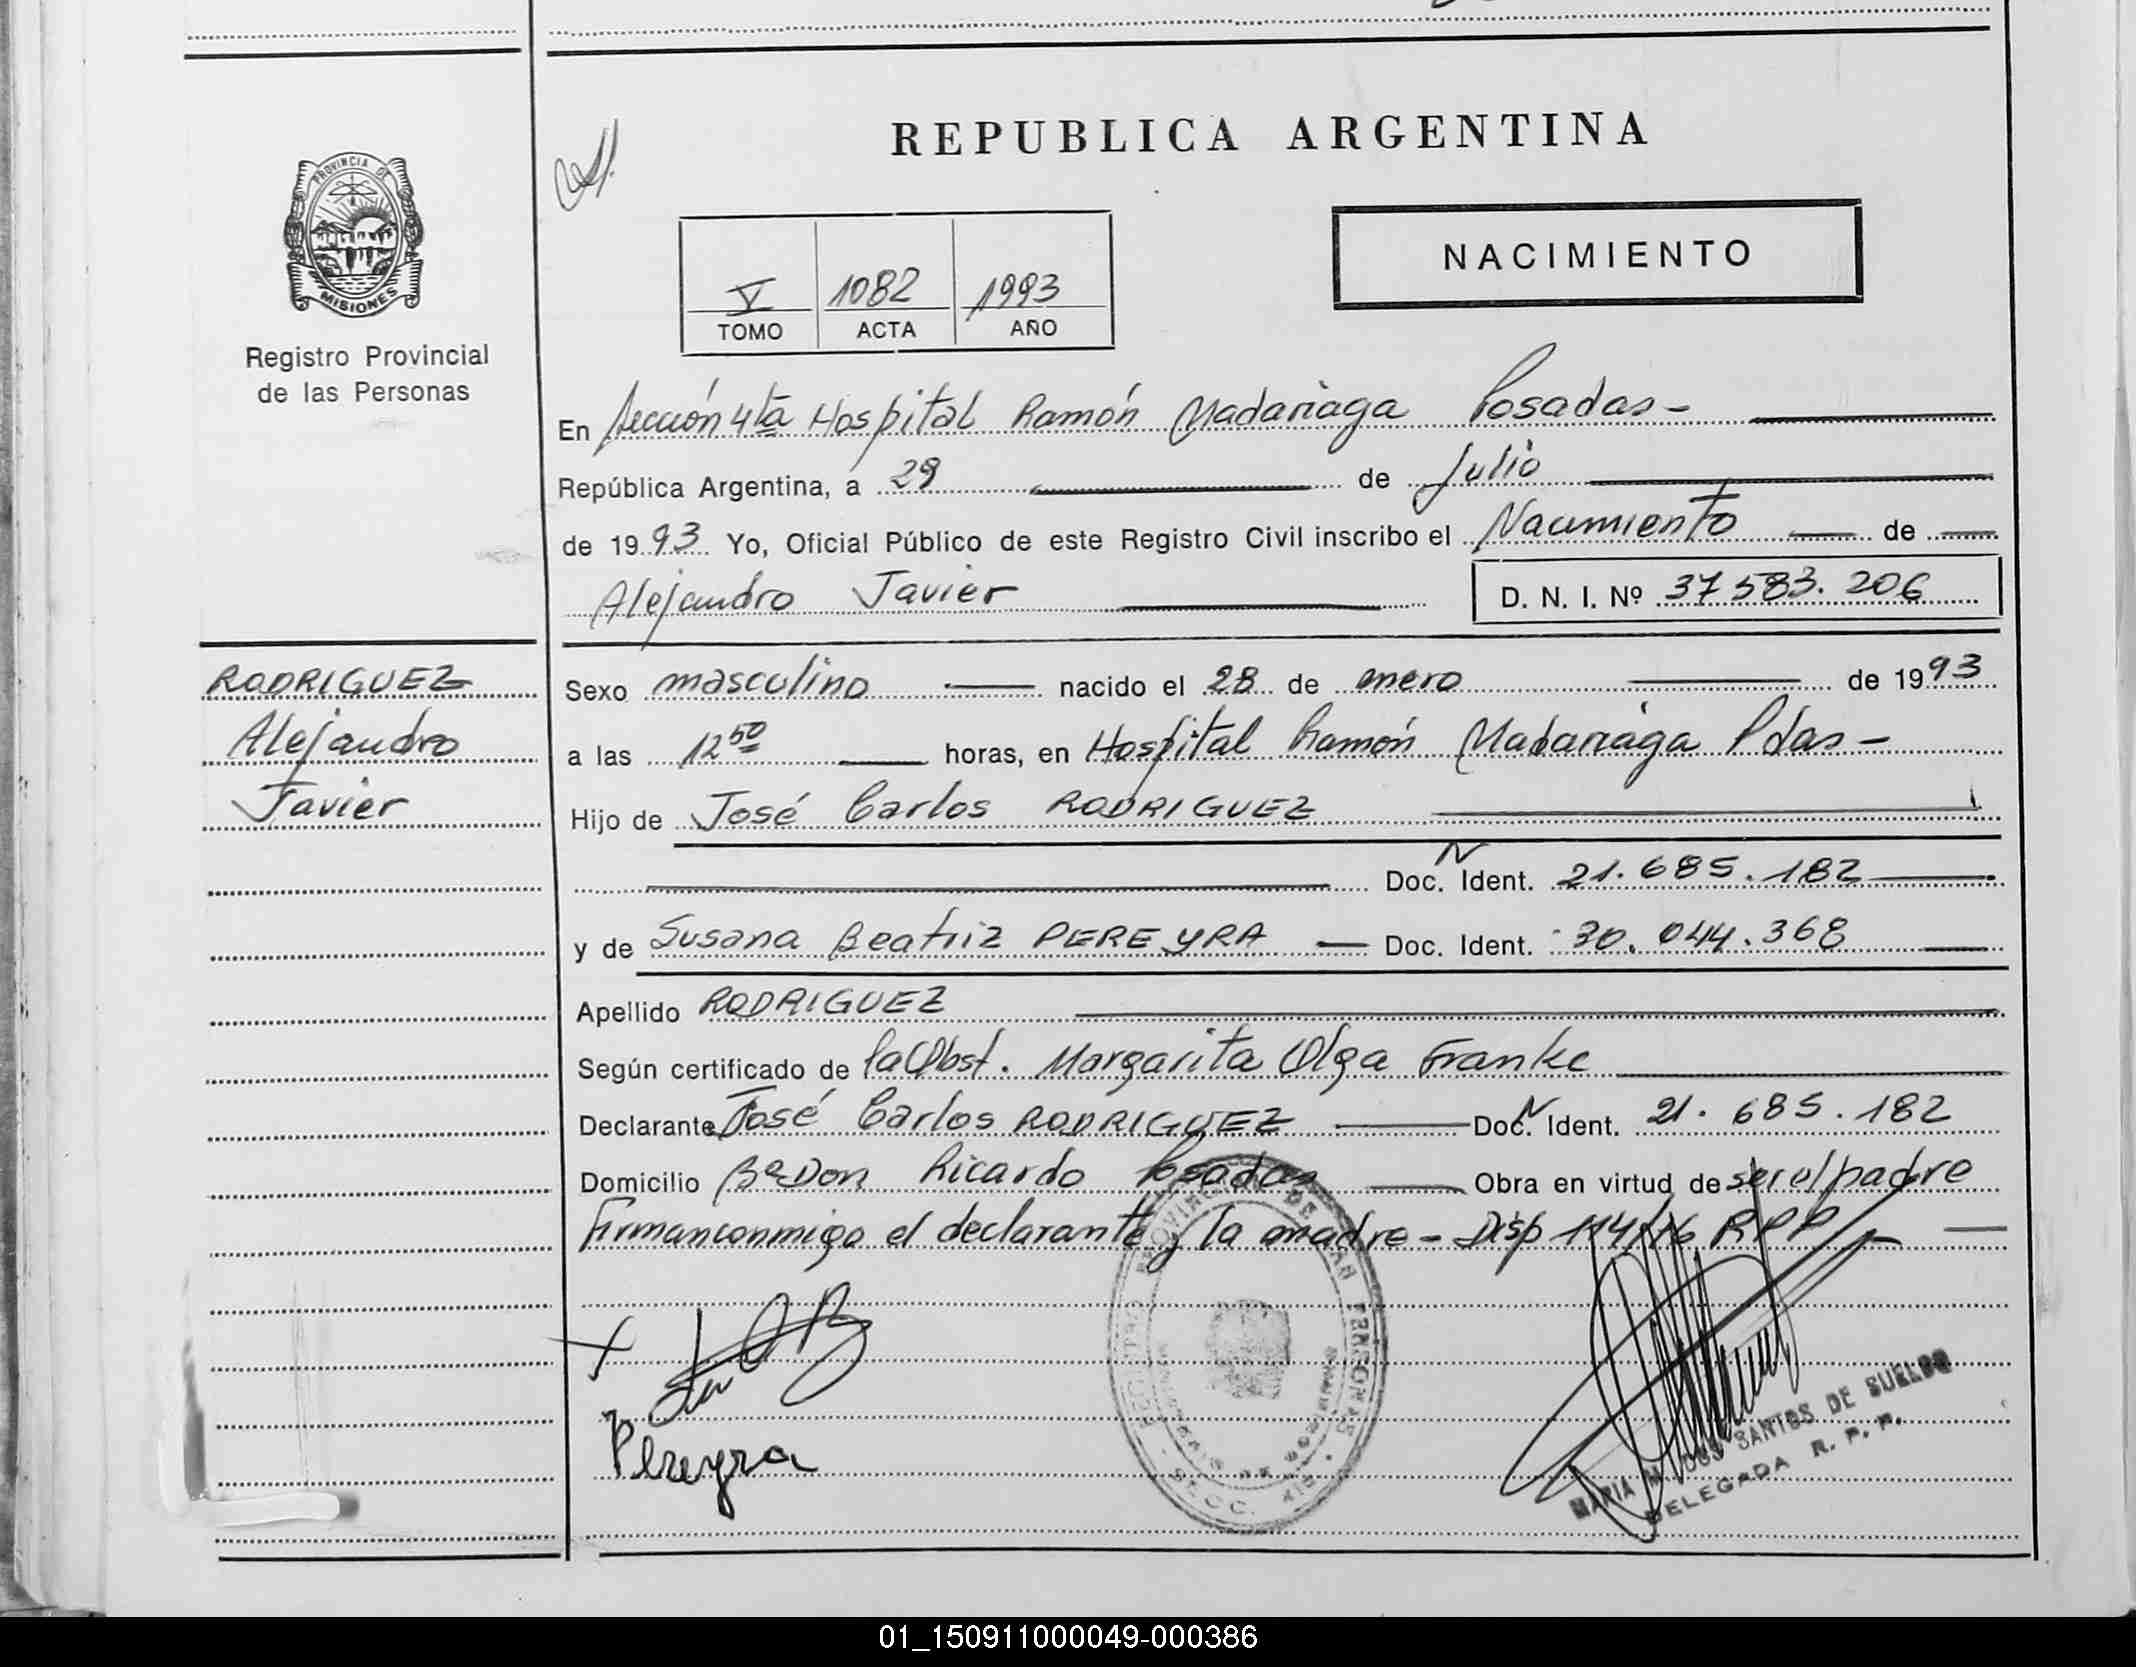 REPUBLICA ARGENTINA
PROVINCIA DE
MISIONES
Registro Provincial
de las Personas
NACIMIENTO
V 1082 1993
TOMO ACTA AÑO
En Sección 4ta Hospital Ramón Madariaga Posadas-
República Argentina, a 29 de Julio
de 1993 Yo, Oficial Público de este Registro Civil inscribo el Nacimiento de
Alejandro Javier D. N. I. Nº 37 583. 206
RODRIGUEZ
Alejandro
Javier
Sexo masculino nacido el 28 de enero de 1993
a las 12 50 horas, en Hospital Ramón Madariaga Pdas-
Hijo de José Carlos RODRIGUEZ
Doc. N Ident. 21.685.182
y de Susana Beatriz PEREYRA Doc. Ident. 30.044.368
Apellido RODRIGUEZ
Según certificado de la Obst. Margarita Olga Franke
Declarante José Carlos RODRIGUEZ Doc. N Ident. 21.685.182
Domicilio Bº Don Ricardo Posadas Obra en virtud de ser el padre
Firman conmigo el declarante y la madre - Disp 114/76 RPP
Pereyra
MARIA M. DOS SANTOS DE SUELDO
DELEGADA R. P. P.
01_150911000049-000386